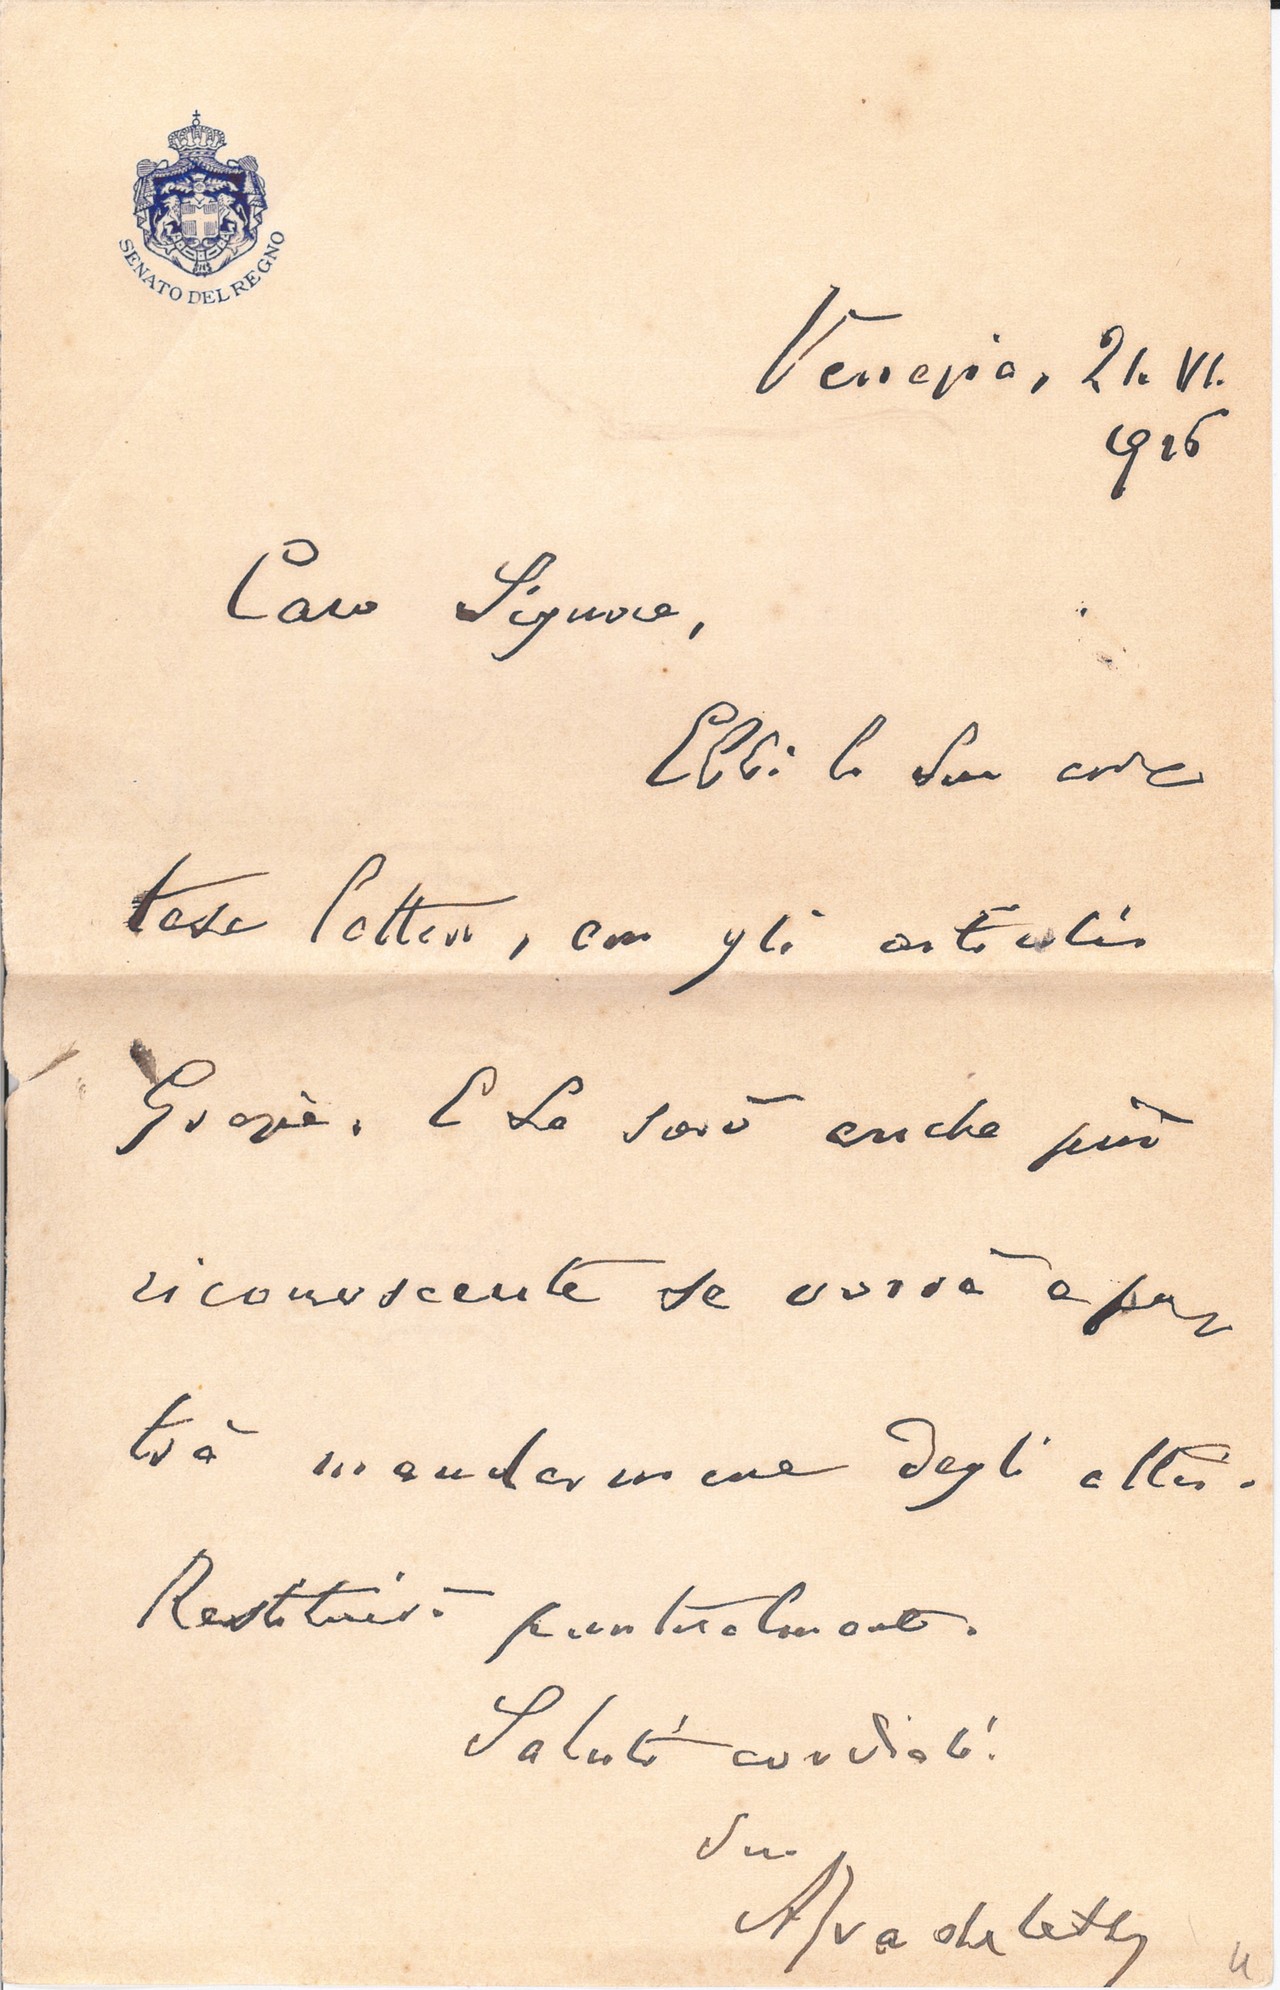 SENATO DEL REGNO
Venezia, 21. VI.
1926
Caro Signore,
Ebbi la sua cor
tese lettera, con gli articoli.
Grazie. E Le sarò anche più
riconoscente se vorrà e po
trà mandarmene degli altri.
Restituirò puntualmente.
Saluti cordiali.
Suo